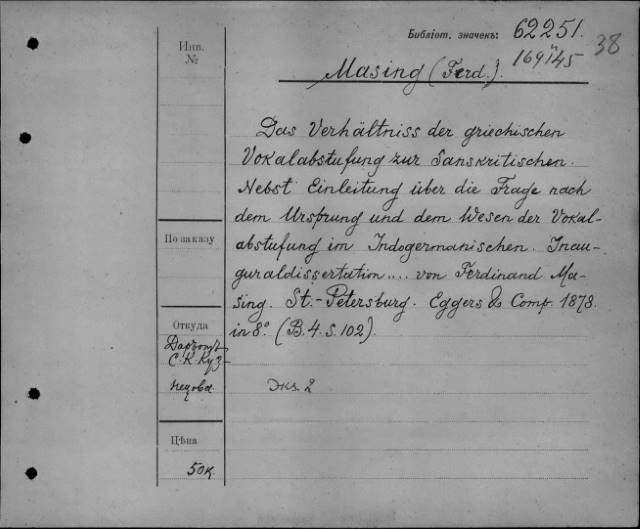 Библіот. значекъ: 62251.
38
Инв.
№
169 II 45
Masing (Ferd.).
Das Verhältniss der griechischen
Vokalabstufung zur Sanskritischen.
Nebst Einleitung über die Frage nach
dem Ursprung und dem Wesen der Vokal-
abstufung im Indogermanischen. Inau-
guraldissertation.... von Ferdinand Ma-
sing. St.-Petersburg. Eggers & Comp. 1878.
in 8.° (B. 4 S. 102).
По заказу
Откуда
Даръ отъ
С. К. Куз-
нецова.
Экз 2
Цѣна
50 к.